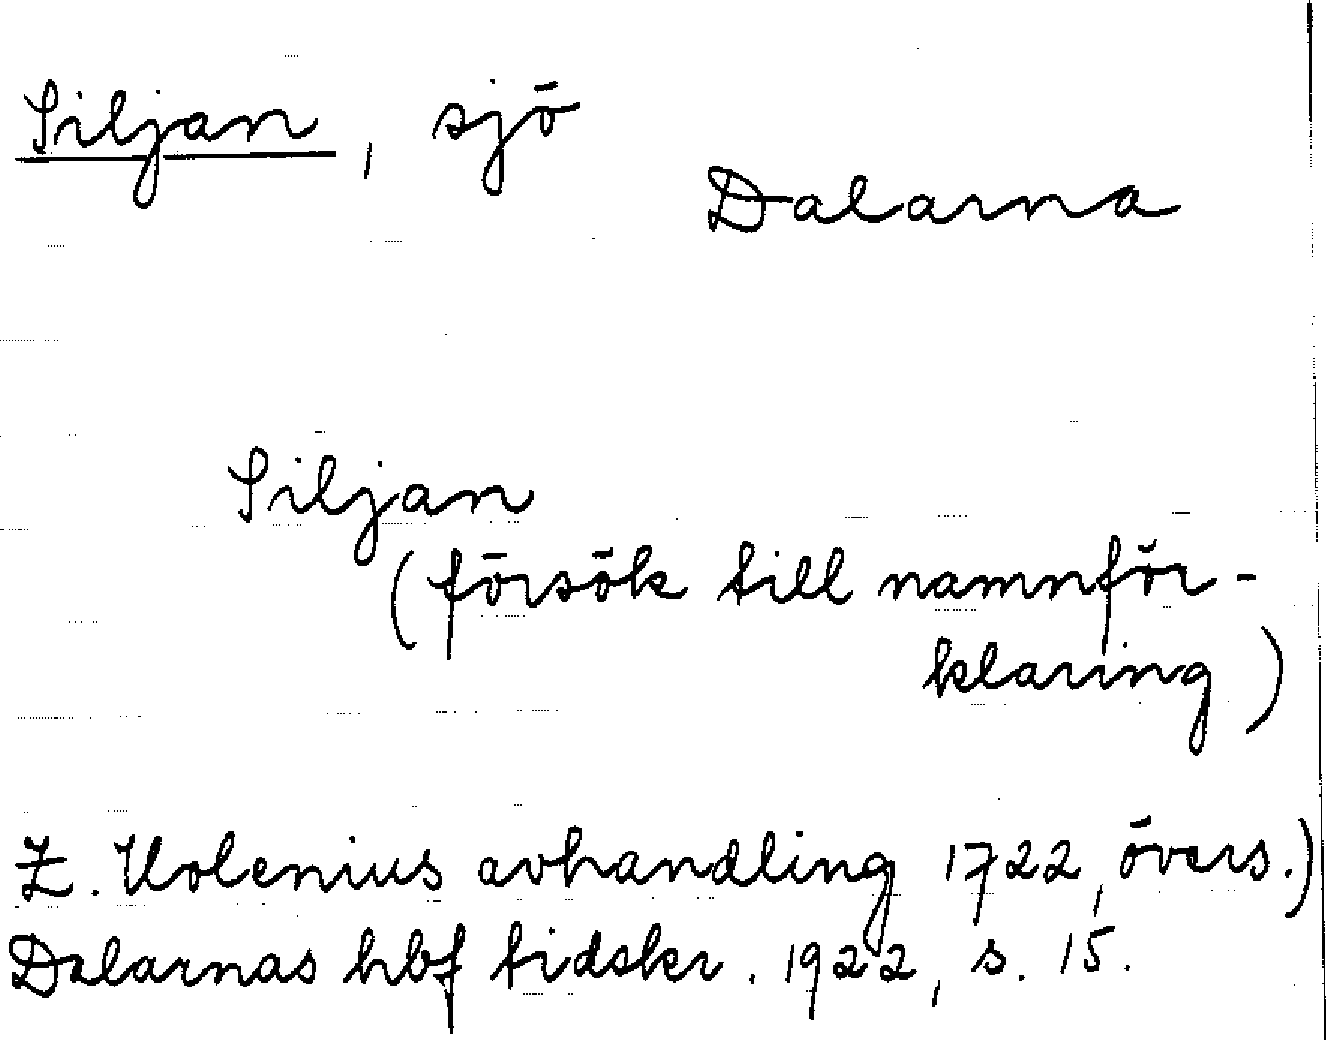 Siljan, sjö
Dalarna
Siljan
(försök till namnför-
klaring)
Z. Holenius avhandling 1722, övers.)
Dalarnas hbf tidskr. 1922, s. 15.